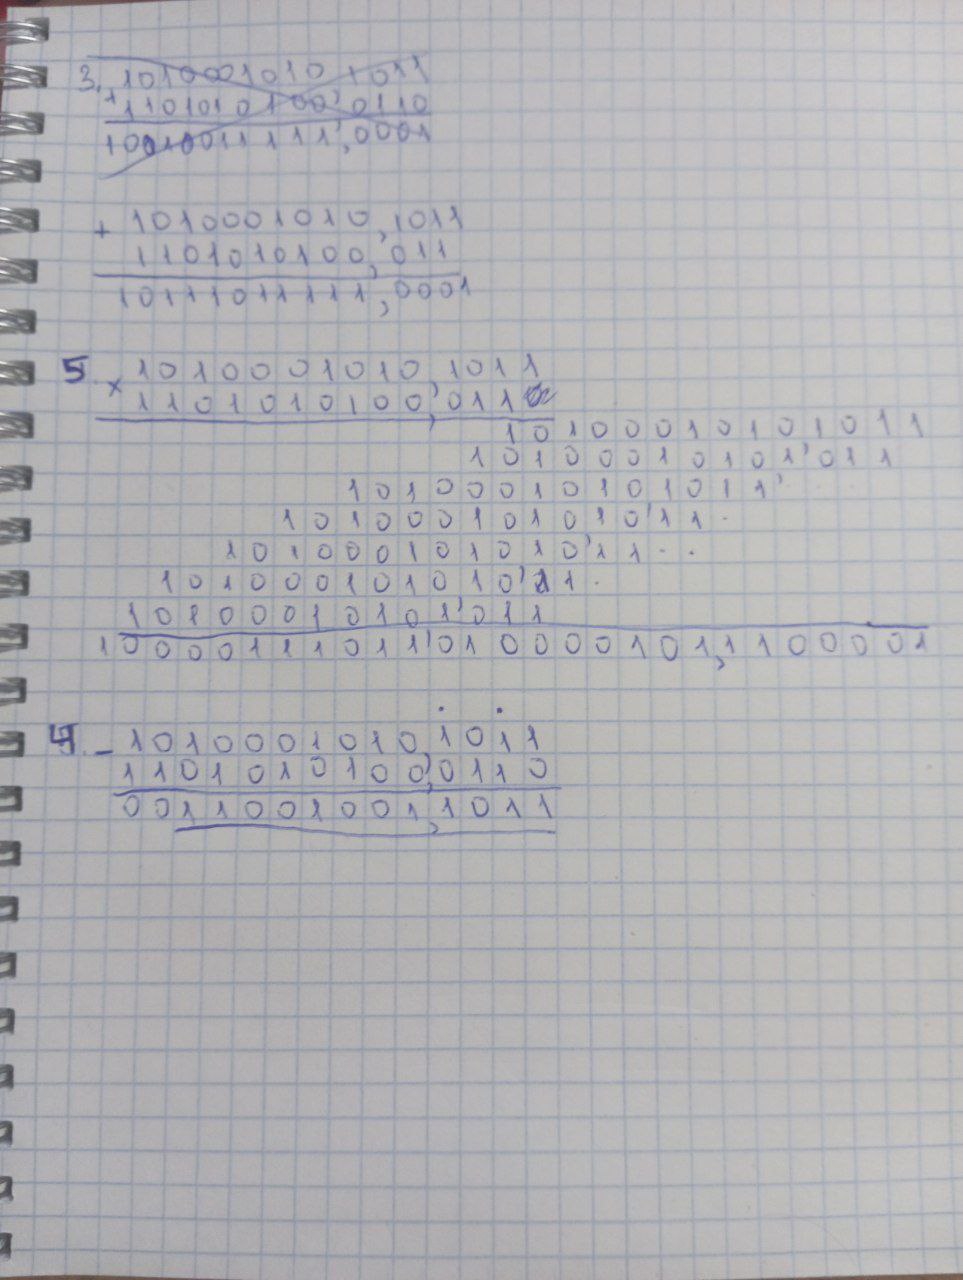 3. 1010001010 1011
+ 1101010100,0110
10010011111,0001
+ 1010001010,1011
1101010100,011
10111011111,0001
5 × 1010001010,1011
1101010100,011
10100010101011
10100010101'011
10100010101011'
101000101010'11.
101000101010'11..
101000101010'11.
10100010101'011
100001110111'010000101,1100001
4. - 1010001010,1011
1101010100,0110
0011001001,1011